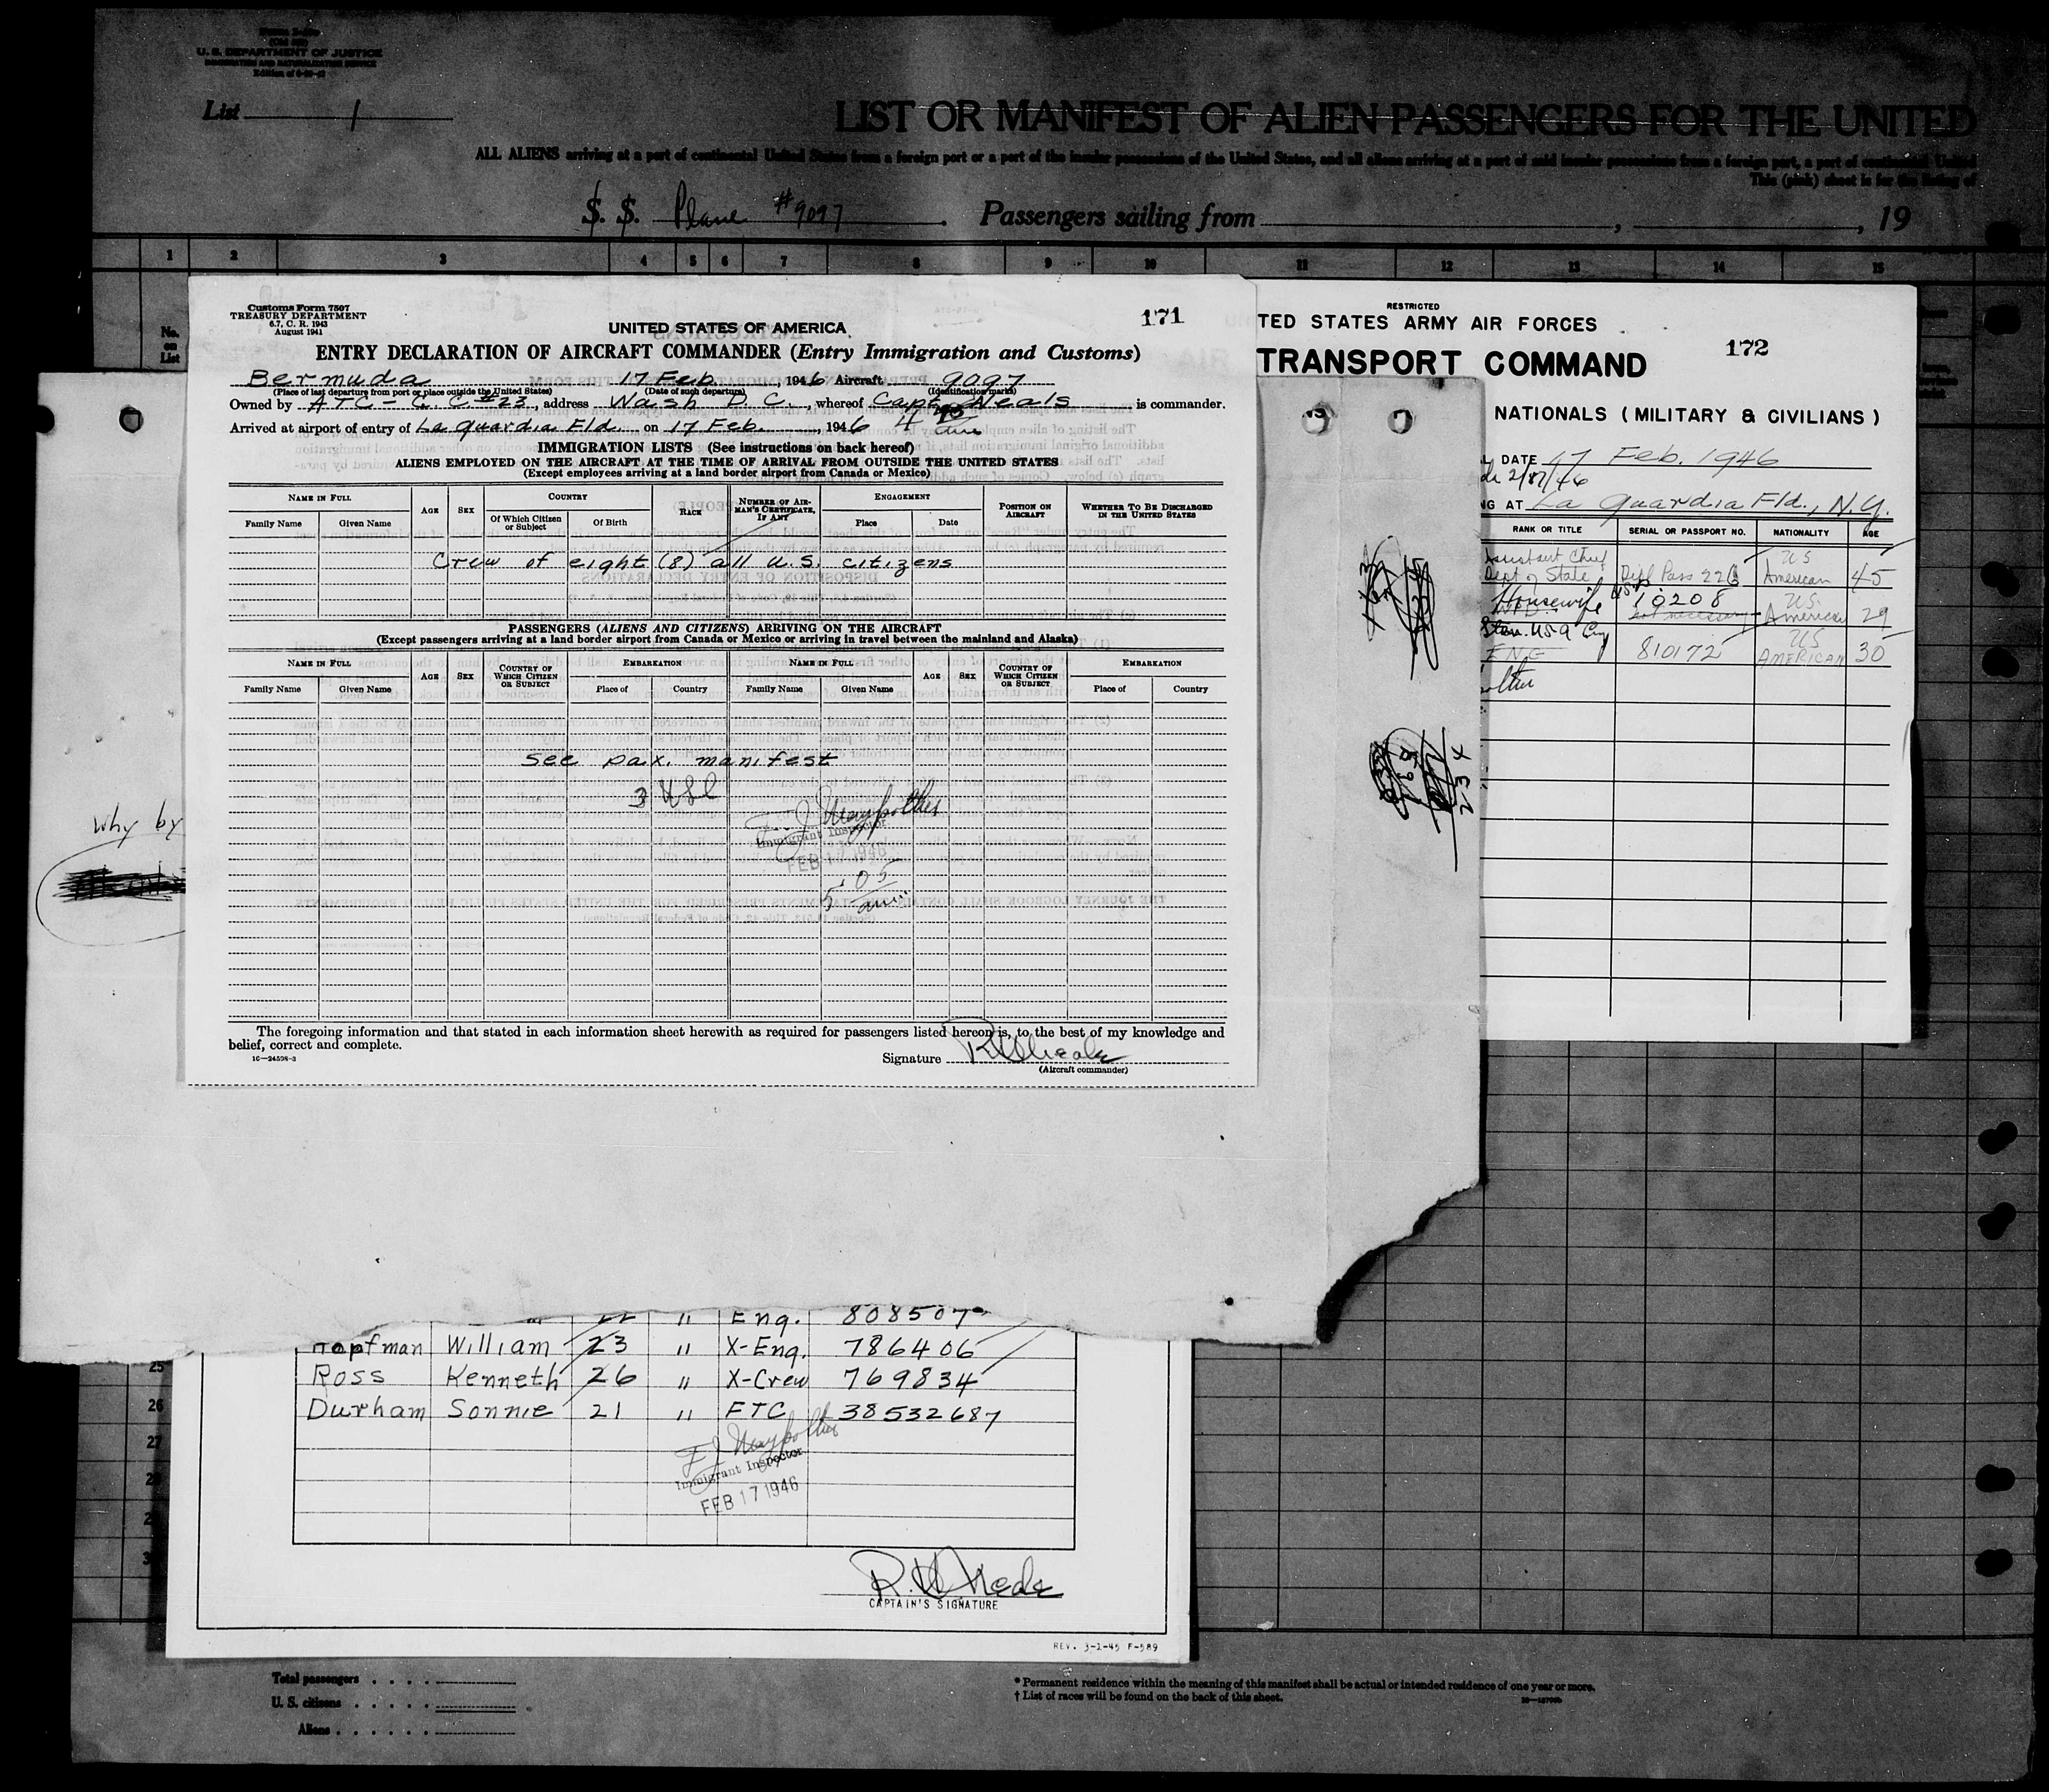 U. S. DEPARTMENT OF JUSTICE
IMMIGRATION AND NATURALIZATION SERVICE
List 1
LIST OR MANIFEST OF ALIEN PASSENGERS FOR THE UNITED
ALL ALIENS arriving at a port of continental United States from a foreign port or a port of the insular possessions of the United States, and all aliens arriving at a port of said insular possessions from a foreign port, a port of continental United
This (pink) sheet is for the listing of
S. S. Plane #9097 . Passengers sailing from , , 19
1 2 3 4 5 6 7 8 9 10 11 12 13 14 15
No. on List
Customs Form 7507
TREASURY DEPARTMENT
6.7, C. R. 1943
August 1941
171
UNITED STATES OF AMERICA
ENTRY DECLARATION OF AIRCRAFT COMMANDER (Entry Immigration and Customs)
Bermuda 17 Feb. , 1946 Aircraft 9097
(Place of last departure from port or place outside the United States) (Date of such departure) (Identification marks)
Owned by ATC - C. C. #23 , address Wash D. C. , whereof Capt. Neals is commander.
Arrived at airport of entry of La guardia Fld. on 17 Feb. , 1946 4 am
IMMIGRATION LISTS (See instructions on back hereof)
ALIENS EMPLOYED ON THE AIRCRAFT AT THE TIME OF ARRIVAL FROM OUTSIDE THE UNITED STATES
(Except employees arriving at a land border airport from Canada or Mexico)
NAME IN FULL AGE SEX COUNTRY RACE NUMBER OF AIRMAN'S CERTIFICATE, IF ANY ENGAGEMENT POSITION ON AIRCRAFT WHETHER TO BE DISCHARGED IN THE UNITED STATES
Family Name Given Name Of Which Citizen or Subject Of Birth Place Date
Crew of eight (8) all U.S. citizens
PASSENGERS (ALIENS AND CITIZENS) ARRIVING ON THE AIRCRAFT
(Except passengers arriving at a land border airport from Canada or Mexico or arriving in travel between the mainland and Alaska)
NAME IN FULL AGE SEX COUNTRY OF WHICH CITIZEN OR SUBJECT EMBARKATION NAME IN FULL AGE SEX COUNTRY OF WHICH CITIZEN OR SUBJECT EMBARKATION
Family Name Given Name Place of Country Family Name Given Name Place of Country
see pax. manifest
3 USC
F. J. Maypother
Immigrant Inspector
FEB 17 1946
5:05 am
The foregoing information and that stated in each information sheet herewith as required for passengers listed hereon is, to the best of my knowledge and
belief, correct and complete.
16—24598-3
Signature
(Aircraft commander)
RESTRICTED
TED STATES ARMY AIR FORCES
172
TRANSPORT COMMAND
NATIONALS (MILITARY & CIVILIANS)
L DATE 17 Feb. 1946
2/17/46
NG AT La guardia Fld., N.Y.
RANK OR TITLE SERIAL OR PASSPORT NO. NATIONALITY AGE
Assistant Chief Dept of State Dipl Pass 226 US American 45
Housewife 10208 U.S. American 29
not necessary
810172 US AMERICAN 30
why by
234
Eng. 808507
William 23 " X-Eng. 786406
Ross Kenneth 26 " X-Crew 769834
Durham Sonnie 21 " FTC 38532687
F J Maypother
Immigrant Inspector
FEB 17 1946
CAPTAIN'S SIGNATURE
REV. 3-1-45 F-589
25
26
27
Total passengers
U. S. citizens
Aliens
* Permanent residence within the meaning of this manifest shall be actual or intended residence of one year or more.
† List of races will be found on the back of this sheet.